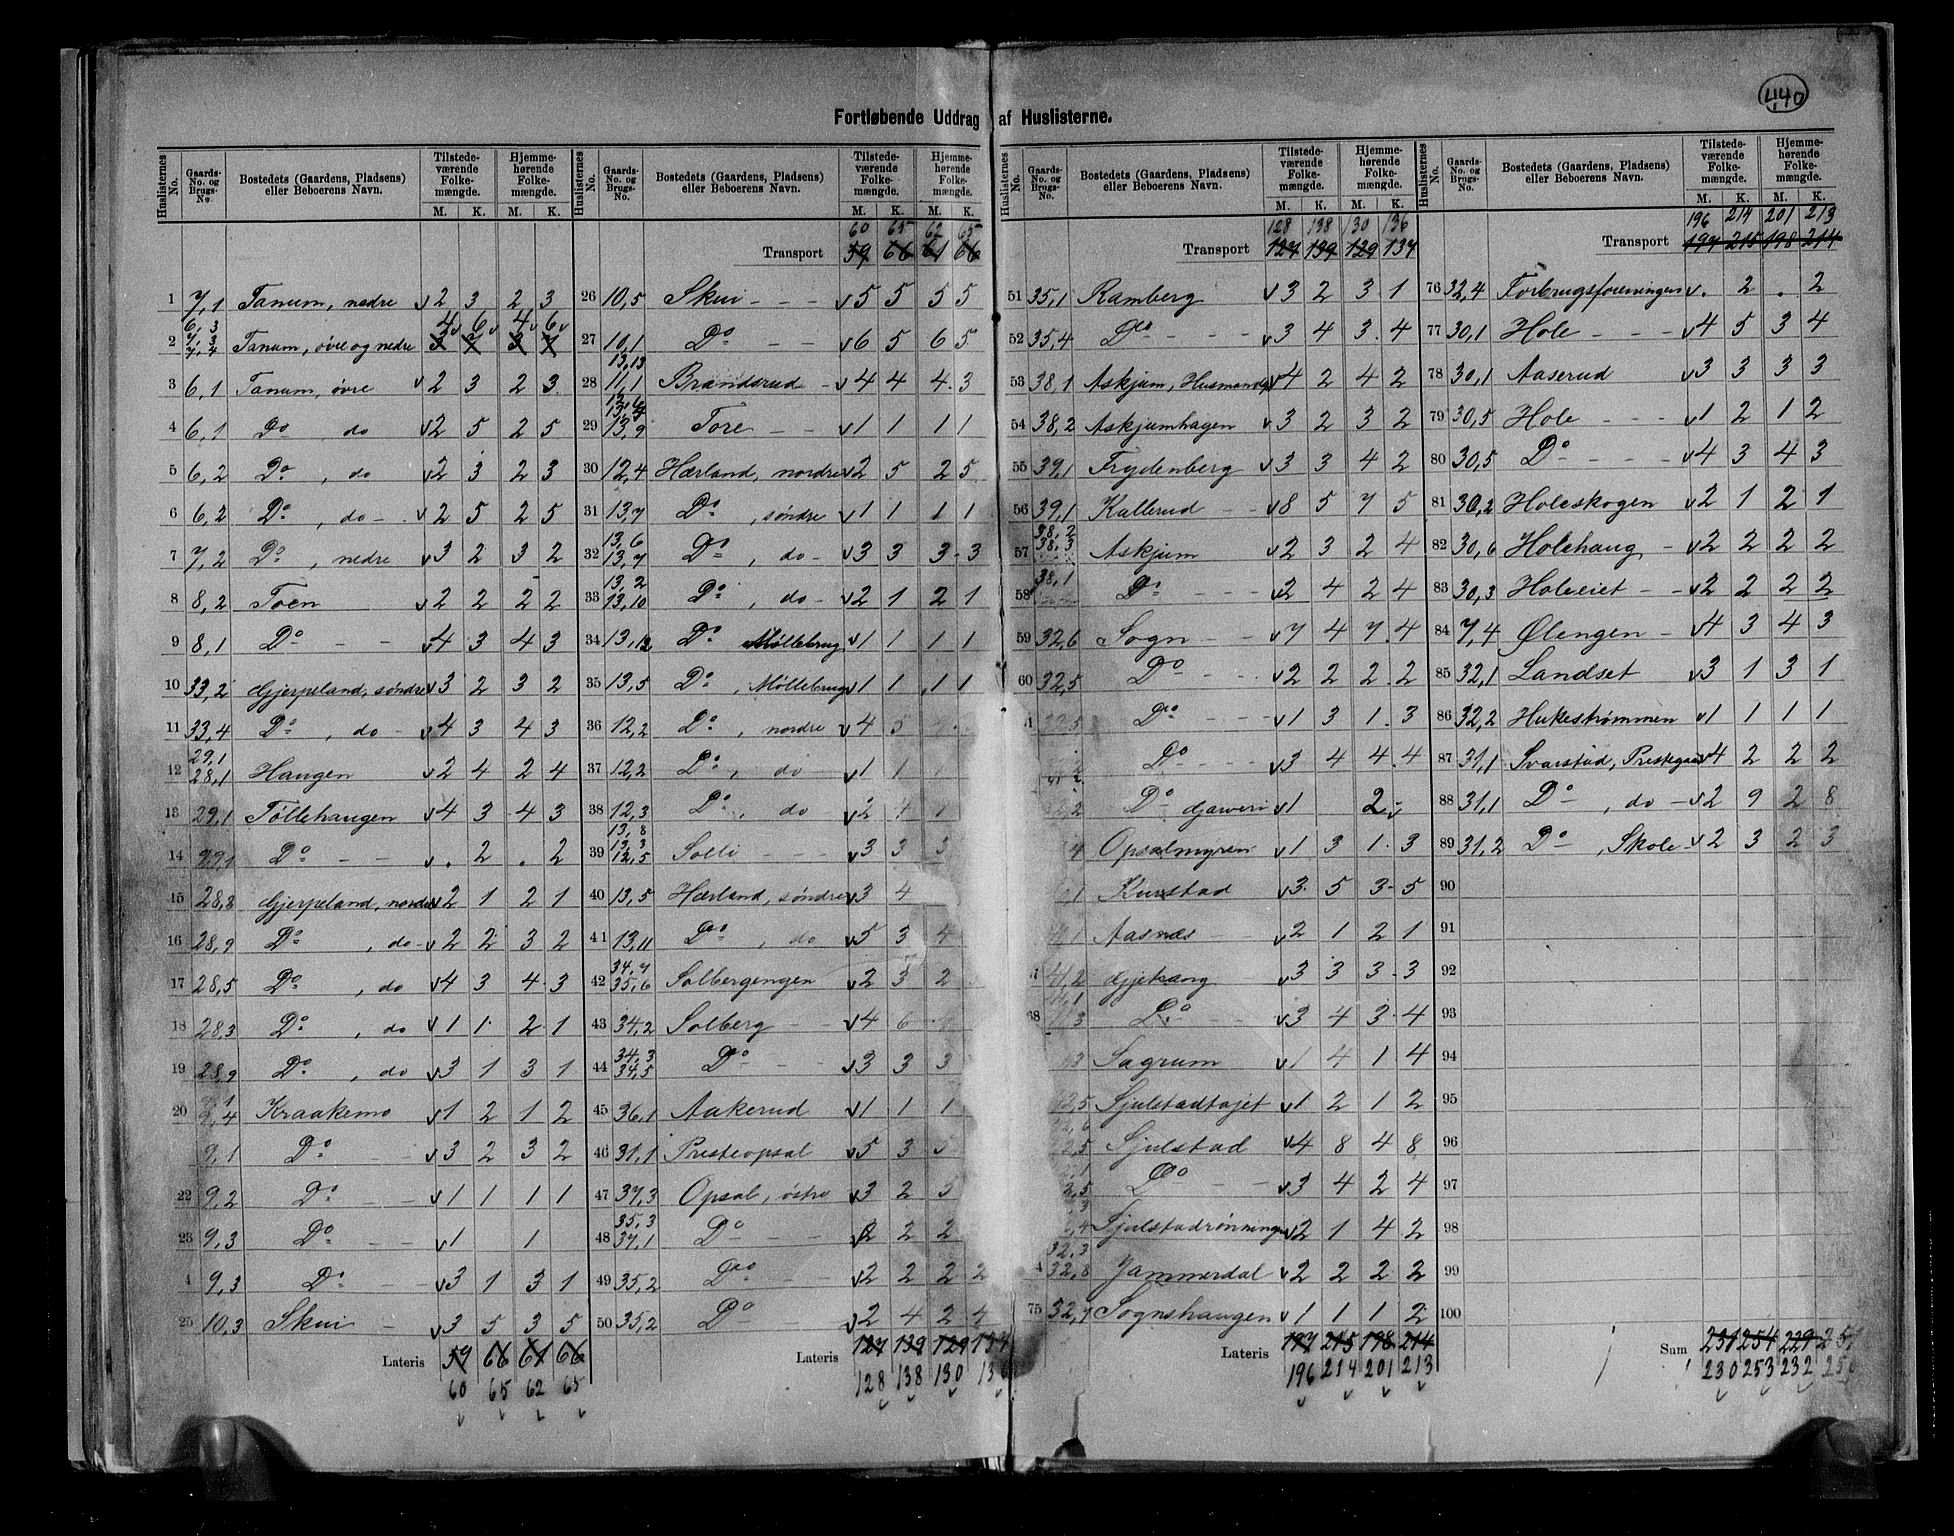 440
Fortløbende Uddrag af Huslisterne.
Huslisternes No. | Gaards-No. og Brugs-No | Bostedets (Gaardens, Pladsens) eller Beboerens Navn. | Tilstedeværende Folkemængde. M. K. | Hjemmehørende Folkemængde. M. K.
1 7,1 Tanum, nedre v2 3 2 3
2 6,3 7,3 7,4 Tanum, øvre og nedre 4v 6v 4v 6v
3 6,1 Tanum, øvre v2 3 2 3
4 6,1 Do do v2 5 2 5
5 6,2 Do, do v2 3 2 3
6 6,2 Do, do v2 5 2 5
7 7,2 Do, nedre v3 2 3 2
8 8,2 Toen v2 2 2 2
9 8,1 Do v4 3 4 3
10 33,2 Gjerpeland, søndre v3 2 3 2
11 33,4 Do, do v4 3 4 3
12 29,1 28,1 Haugen v2 4 2 4
13 29,1 Tøllehaugen v4 3 4 3
14 29,1 Do v. 2 . 2
15 28,8 Gjerpeland, nordre v2 1 2 1
16 28,9 Do, do v2 2 3 2
17 28,5 Do, do v4 3 4 3
18 28,3 Do, do v1 1 2 1
19 28,9 Do, do v3 1 3 1
20 9,4 Kraakemo v1 2 1 2
9,1 Do v3 2 3 2
22 9,2 Do v1 1 1 1
23 9,3 Do v1 1
4 9,3 Do v3 1 3 1
25 10,3 Skui v3 5 3 5
Lateris 59 66 61 66
60 65 62 65
Huslisternes No. | Gaards-No. og Brugs-No. | Bostedets (Gaardens, Pladsens) eller Beboerens Navn. | Tilstedeværende Folkemængde. M. K. | Hjemmehørende Folkemængde. M. K.
60 65 62 65
Transport 59 66 61 66
26 10,5 Skui v5 5 5 5
27 10,1 Do v6 5 6 5
28 13,13 11,1 Brandsrud v4 4 4 3
29 13,9 Tore v1 1 1 1
30 12,4 Hærland, nordre v2 5 2 5
31 13,7 Do, søndre v1 1 1 1
32 13,6 13,7 Do, do v3 3 3 3
33 13,2 13,10 Do, do v2 1 2 1
34 13,12 Do Møllebrug v1 1 1 1
35 13,5 Do, Møllebrug v1 1 1 1
36 12,2 Do, nordre v4 5
37 12,2 Do, do v1 1 1
38 12,3 Do, do v2 4 1
39 13,8 13,3 12,5 Solli v3 3 3
40 13,5 Hærland, søndre v3 4
41 13,11 Do, do v5 3 4
42 34,7 35,6 Solbergengen v2 3 2
43 34,2 Solberg v4 6
44 34,3 34,5 Do v3 3 3
45 36,1 Aakerud v1 1 1
46 31,1 Presteopsal v5 3 5
47 37,3 Opsal, østre v3 2 3
48 35,3 37,1 Do v2 2 2
49 35,2 Do v2 2 2 2
50 35,2 Do v2 4 2 4
Lateris 127 139 129 137
128 138 130 136
Huslisternes No. | Gaards-No. og Brugs-No. | Bostedets (Gaardens, Pladsens) eller Beboerens Navn. | Tilstedeværende Folkemængde. M. K. | Hjemmehørende Folkemængde. M. K.
128 138 130 136
Transport 127 139 129 137
51 35,1 Ramberg v3 2 3 1
52 35,4 Do v3 4 3 4
53 38,1 Askjum, Husmandspl v4 2 4 2
54 38,2 Askjumhagen v3 2 3 2
55 39,1 Frydenberg v3 3 4 2
56 39,1 Kallerud v8 5 7 5
57 38,2 38,3 Askjum v2 3 2 4
58 38,1 Do v2 4 2 4
59 32,6 Sogn v7 4 7 4
60 32,5 Do v2 2 2 2
1 32,5 Do v1 3 1 3
Do v3 4 4 4
,2 Do Garveri v1 2v
4 Opsalmyren v1 3 1 3
,1 Kurstad v3 5 3 5
,1 Aasnæs v2 1 2 1
7 41,2 Gjekang v3 3 3 3
68 41,1 ,3 Do v3 4 3 4
,3 Sagrum v1 4 1 4
,5 Sjulstadtøjet v1 2 1 2
,6 ,5 Sjulstad v4 8 4 8
,1 2,5 Do v3 4 2 4
,3 ,4 Sjulstadrønningen v2 1 4 2
4 32,3 32,8 Jammerdal v2 2 2 2
75 32,7 Sognshaugen v1 1 1 2
Lateris 197 215 198 214
196 214 201 213
Huslisternes No. | Gaards-No. og Brugs-No. | Bostedets (Gaardens, Pladsens) eller Beboerens Navn. | Tilstedeværende Folkemængde. M. K. | Hjemmehørende Folkemængde. M. K.
196 214 201 213
Transport 197 215 198 214
76 32,4 Forbrugsforeningen v. 2 . 2
77 30,1 Hole v4 5 3 4
78 30,1 Aaserud v3 3 3 3
79 30,5 Hole v1 2 1 2
80 30,5 Do v4 3 4 3
81 30,2 Holeskogen v2 1 2 1
82 30,6 Holehaug v2 2 2 2
83 30,3 Holeeiet v2 2 2 2
84 7,4 Ølengen v4 3 4 3
85 32,1 Landset v3 1 3 1
86 32,2 Hukestrømmen v1 1 1 1
87 31,1 Svarstad, Prestegaard v4 2 2 2
88 31,1 Do, do v2 9 2 8
89 31,2 Do, Skole v2 3 2 3
90
91
92
93
94
95
96
97
98
99
100
Sum 231 254 229 25
230 253 232 25